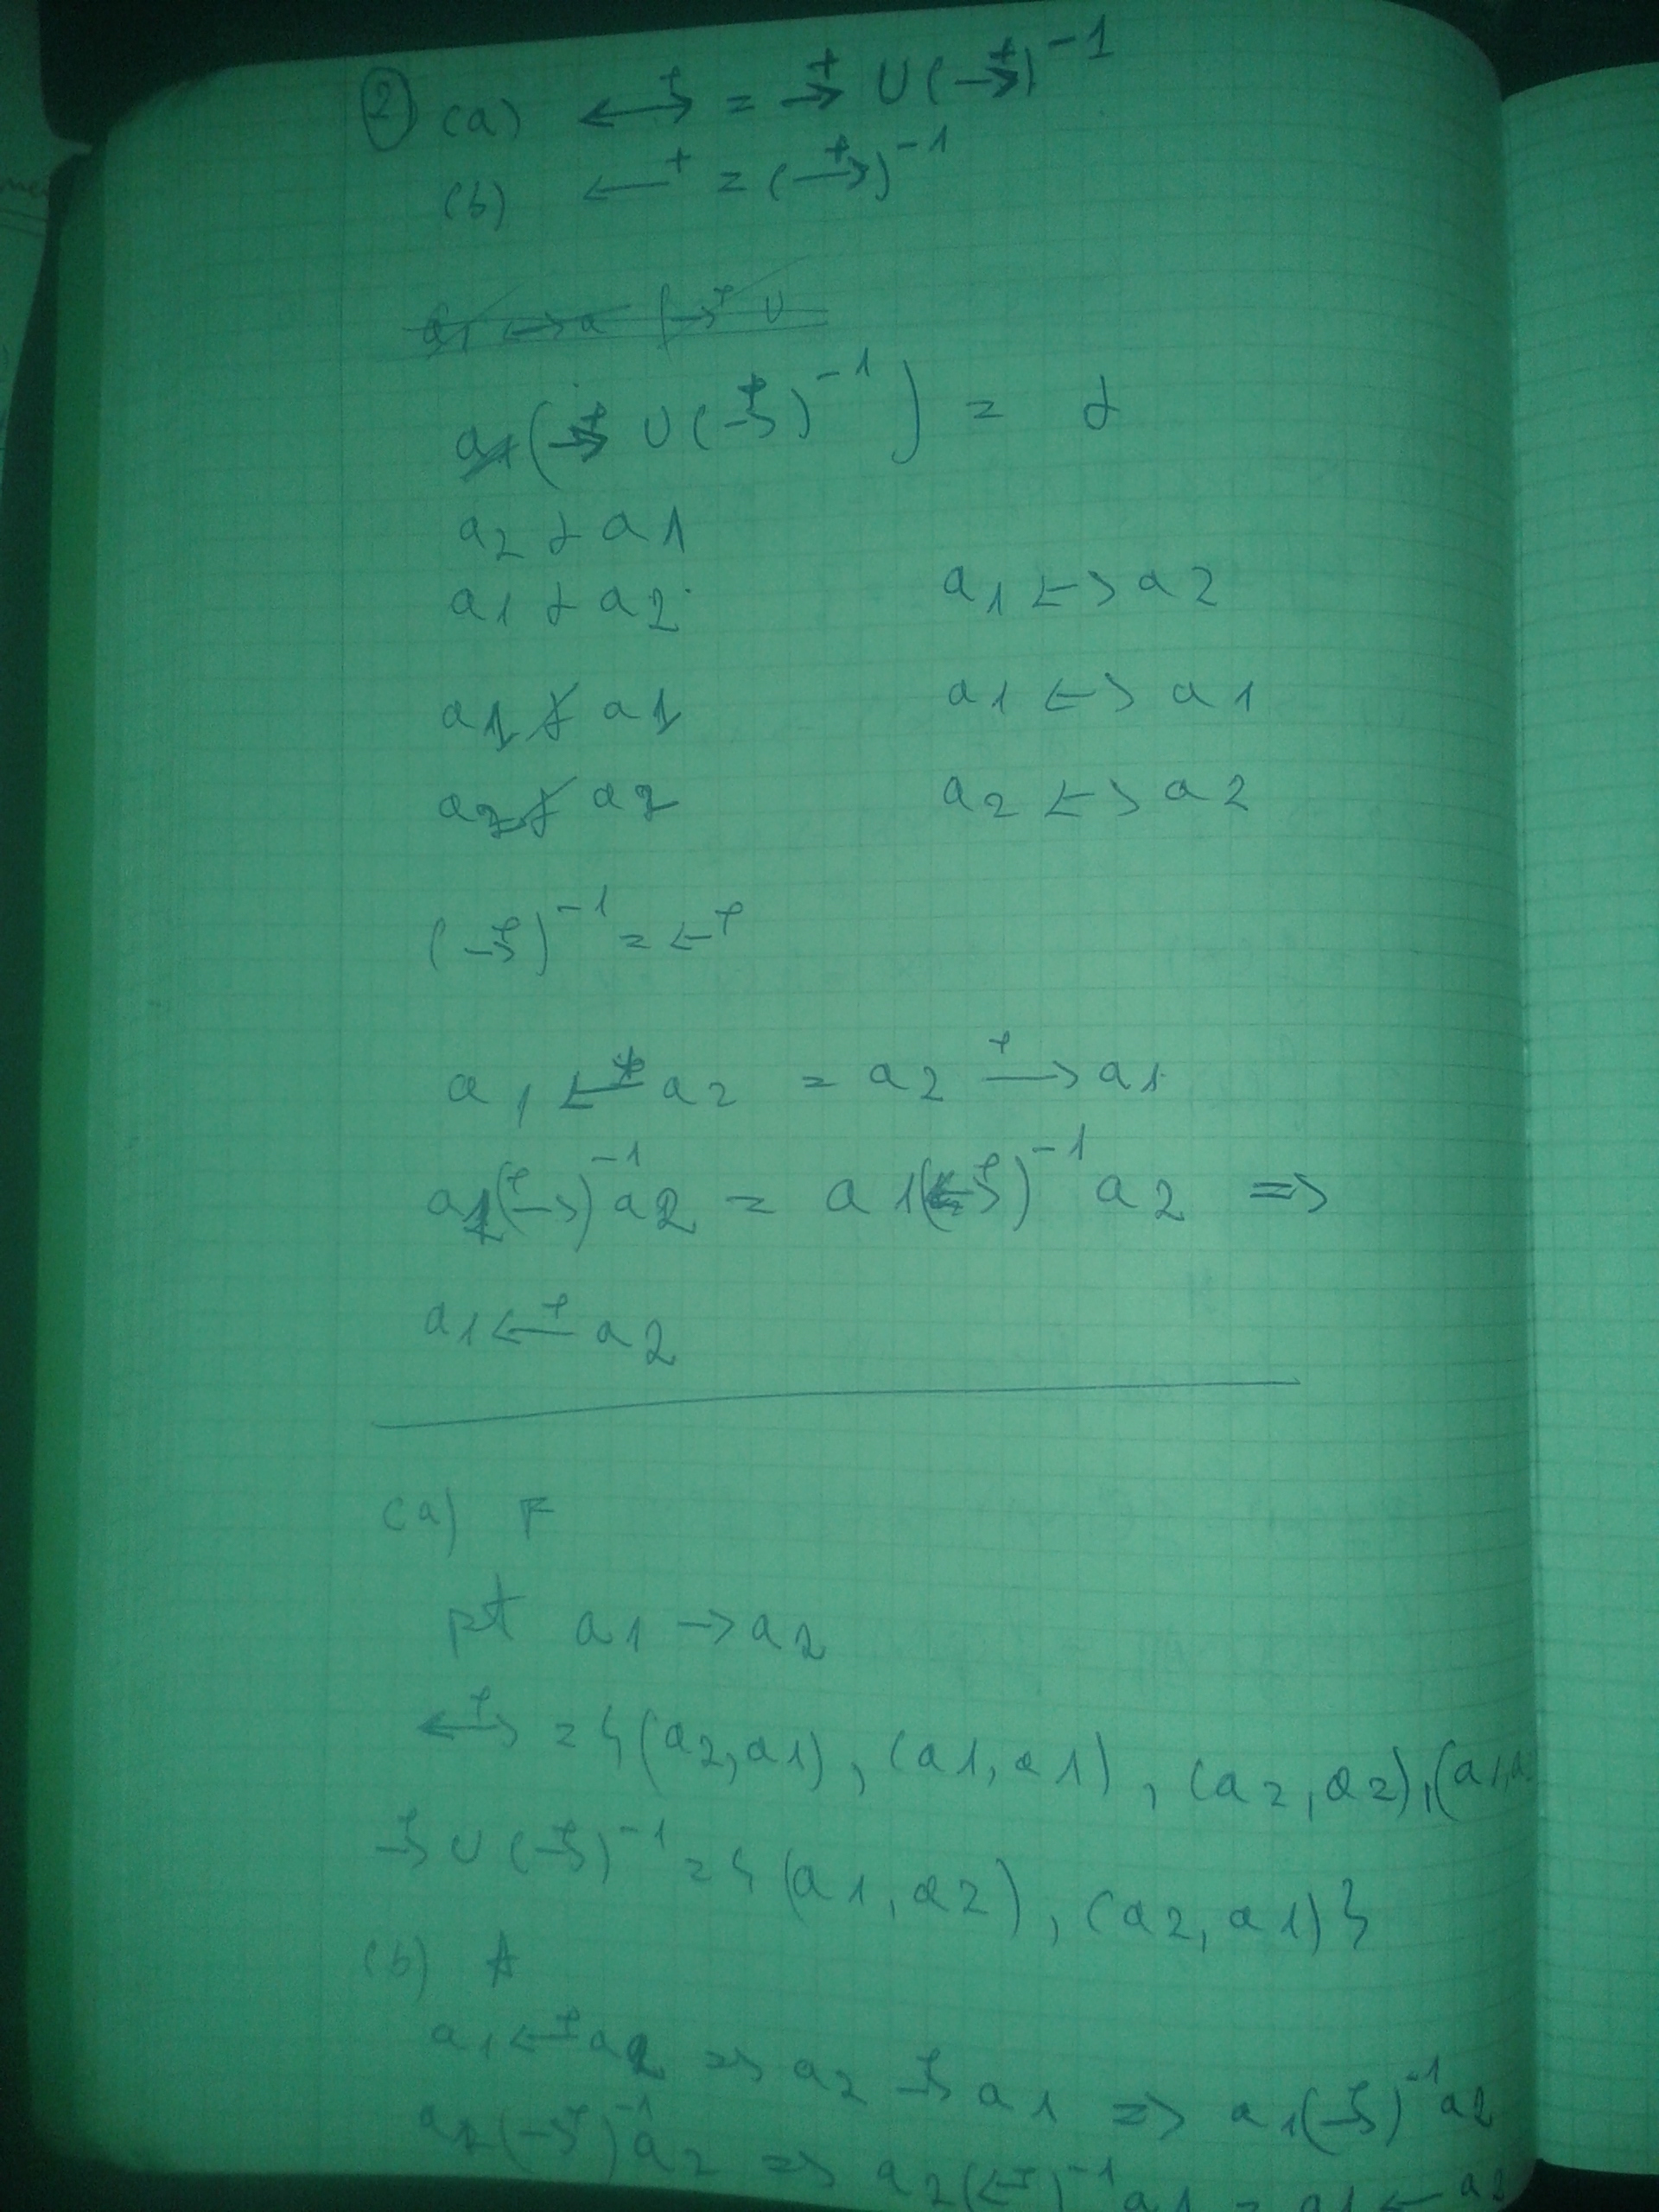 ② (a) ←→⁺ = →⁺ ∪ (→⁺)⁻¹
(b) ←⁺ = (→⁺)⁻¹
a1 ←→ a →⁺ ∪
a1 (→⁺ ∪ (→⁺)⁻¹) = γ
a2 γ a1
a1 γ a2 a1 ←→ a2
a1 γ̸ a1 a1 ←→ a1
a2 γ̸ a2 a2 ←→ a2
(→⁺)⁻¹ = ←⁺
a1 ←⁺ a2 = a2 →⁺ a1
a1 (→⁺)⁻¹ a2 = a1 (→⁺)⁻¹ a2 ⇒
a1 ←⁺ a2
(a) F
pt a1 → a2
←→⁺ = {(a2, a1), (a1, a1), (a2, a2), (a1,
→⁺ ∪ (→⁺)⁻¹ = {(a1, a2), (a2, a1)}
(b) A
a1 ←⁺ a2 ⇒ a2 →⁺ a1 ⇒ a1 (→⁺)⁻¹ a2
(→⁺)⁻¹ a2 ⇒ a2 (←⁺)⁻¹ a1 = a1 ← a2